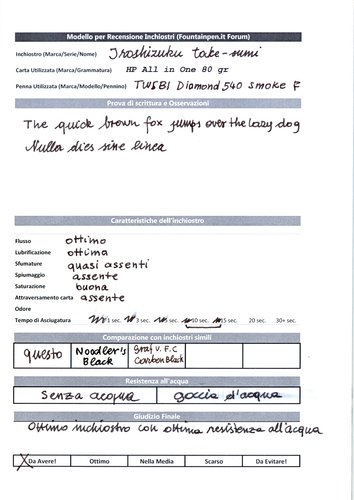 Modello per Recensione Inchiostri (Fountainpen.it Forum)
Inchiostro (Marca/Serie/Nome) Iroshizuku take-sumi
Carta Utilizzata (Marca/Grammatura) HP All in One 80 gr
Penna Utilizzata (Marca/Modello/Pennino) TWSBI Diamond 540 smoke F
Prova di scrittura e Osservazioni
The quick brown fox jumps over the lazy dog
Nulla dies sine linea
Caratteristiche dell'inchiostro
Flusso ottimo
Lubrificazione ottima
Sfumature quasi assenti
Spiumaggio assente
Saturazione buona
Attraversamento carta assente
Odore
Tempo di Asciugatura 1 sec. 3 sec. 5 sec. 10 sec. 15 sec. 20 sec. 30+ sec.
Comparazione con inchiostri simili
questo Noodler's Black Graf V. F. C Carbon Black
Resistenza all'acqua
Senza acqua goccia d'acqua
Giudizio Finale
Ottimo inchiostro con ottima resistenza all'acqua
Da Avere! Ottimo Nella Media Scarso Da Evitare!